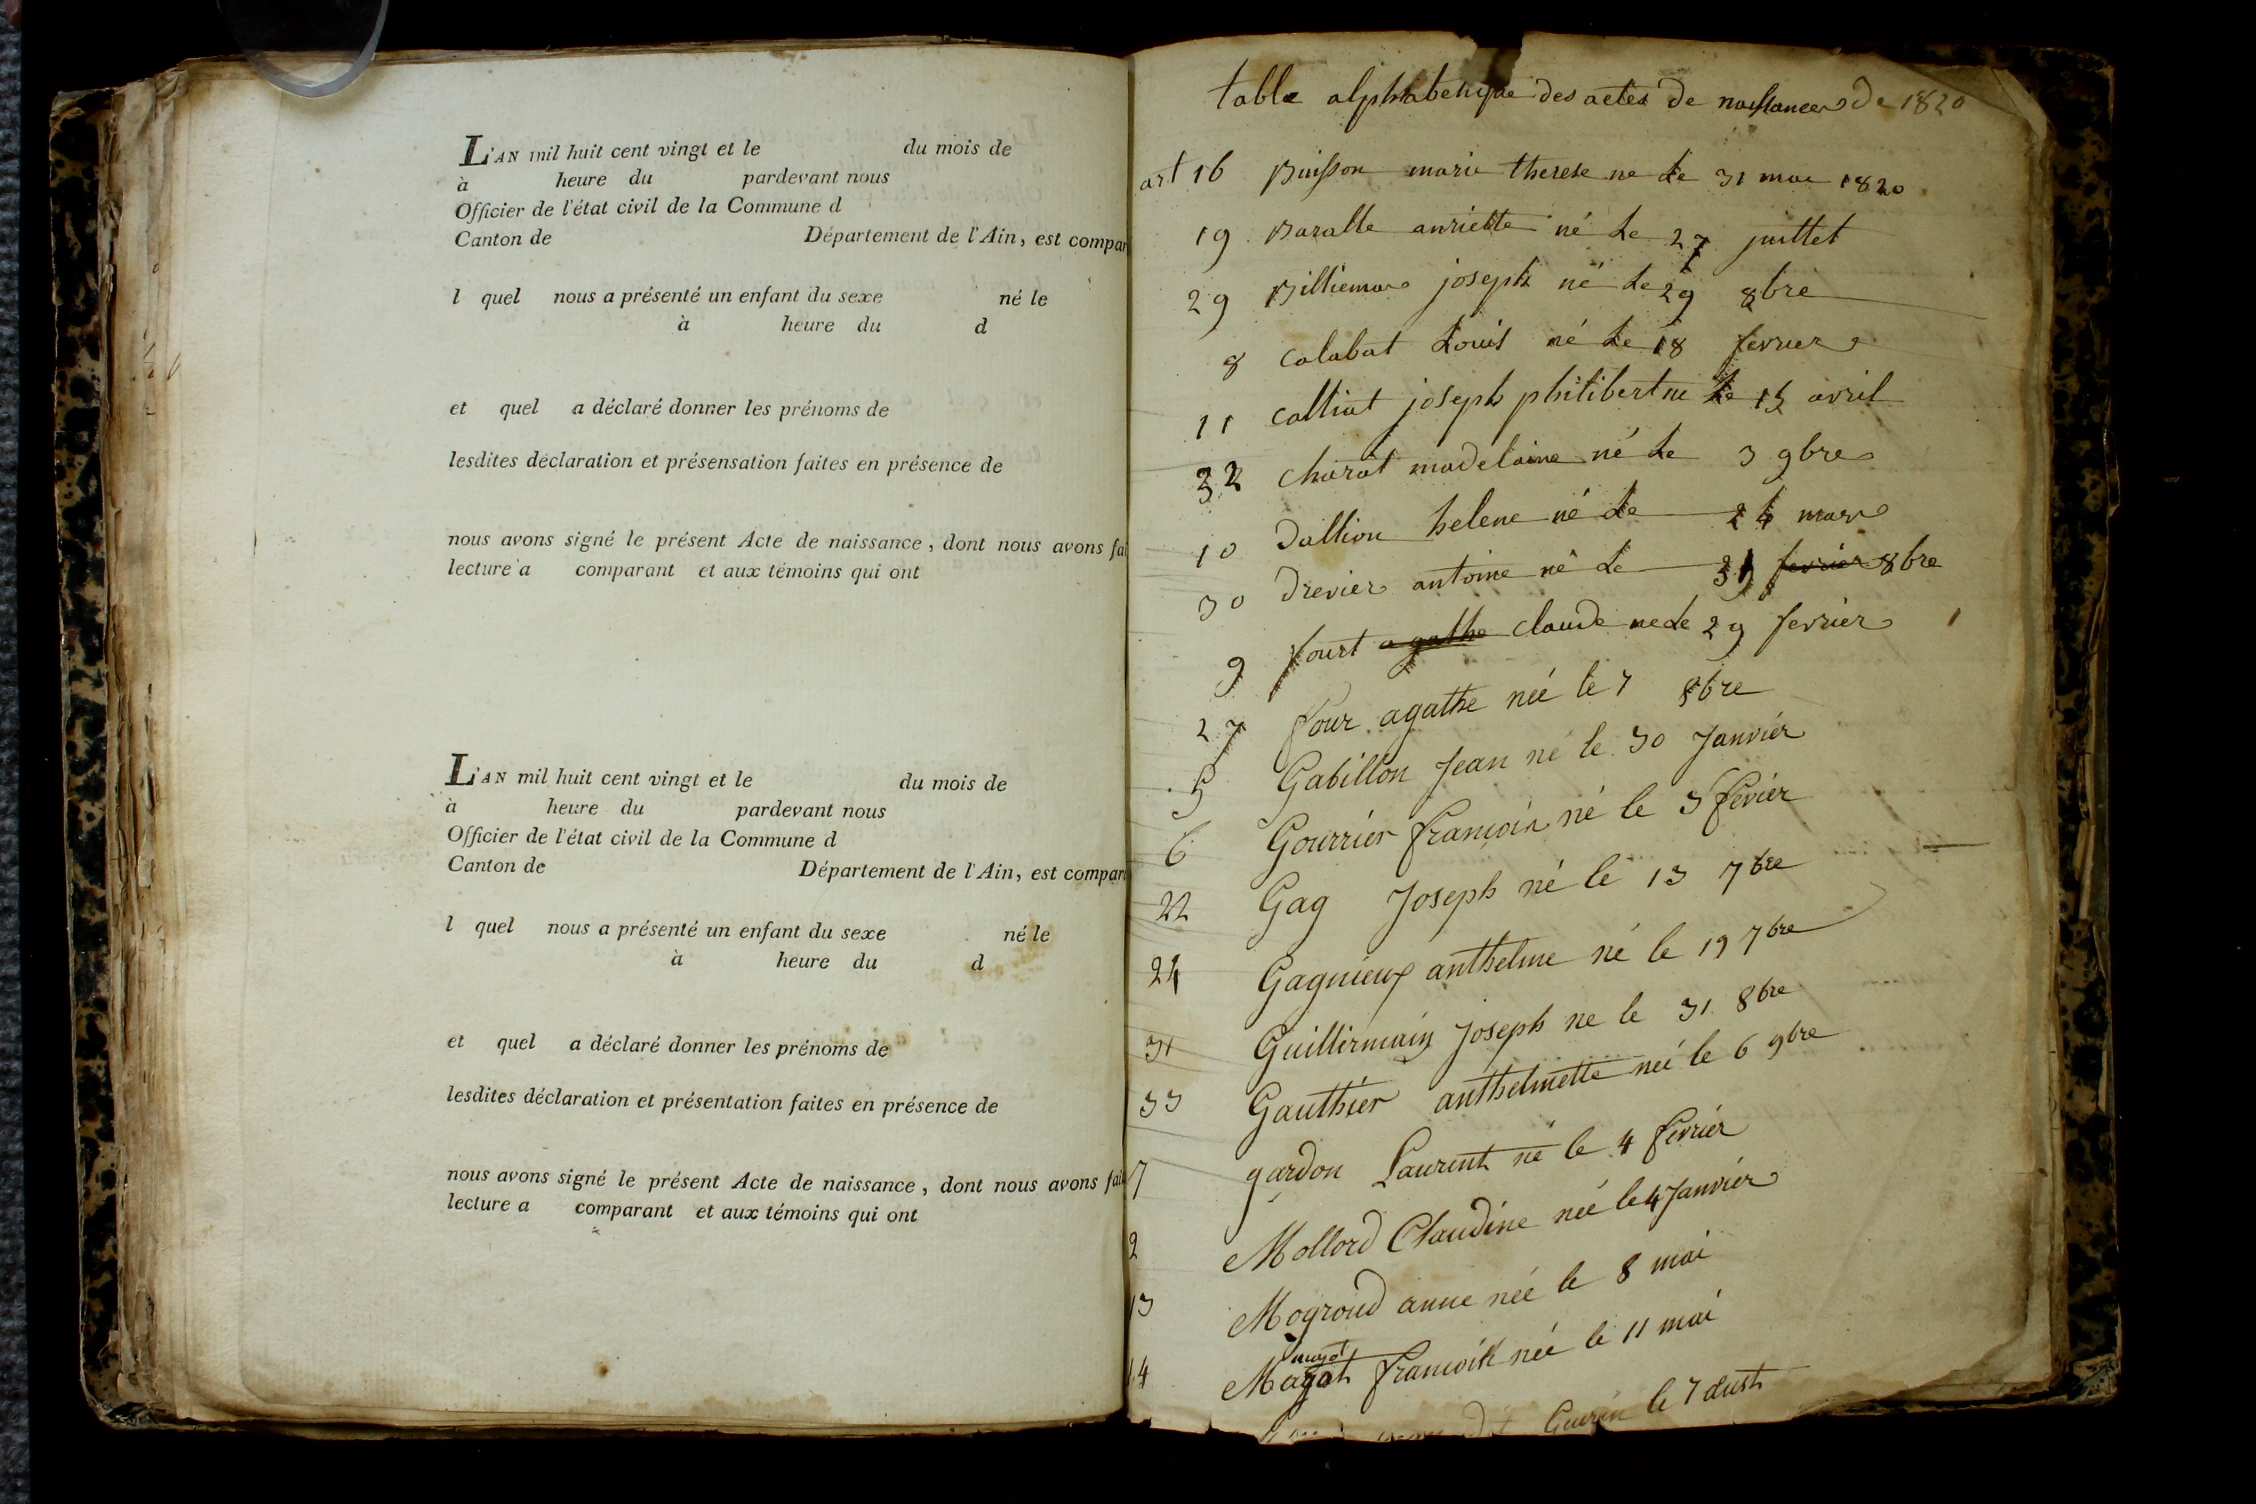 L'AN mil huit cent vingt et le du mois de
à heure du pardevant nous
Officier de l'état civil de la Commune d
Canton de Département de l'Ain, est compar
l quel nous a présenté un enfant du sexe né le
à heure du d
et quel a déclaré donner les prénoms de
lesdites déclaration et présensation faites en présence de
nous avons signé le présent Acte de naissance, dont nous avons fai
lecture a comparant et aux témoins qui ont
L'AN mil huit cent vingt et le du mois de
à heure du pardevant nous
Officier de l'état civil de la Commune d
Canton de Département de l'Ain, est compar
l quel nous a présenté un enfant du sexe né le
à heure du d
et quel a déclaré donner les prénoms de
lesdites déclaration et présentation faites en présence de
nous avons signé le présent Acte de naissance, dont nous avons fai
lecture a comparant et aux témoins qui ont
table alphabetique des actes de naissances de 1820
art 16 Buisson marie therese ne le 31 mai 1820
19 Baralle anriette né le 27 juillet
29 joseph né le 29 8bre
8 calabat Louis né le 18 fevrier
11 calliat joseph philibert ne le 15 avril
32 charat madelaine né le 3 9bre
10 dallion helene né le 24 mars
30 drevier antoine né le 31 fevrier 8bre
9 fourt agathe claude ne le 29 fevrier
27 four agathe née le 7 8bre
5 Gabillon Jean né le 30 Janvier
6 Gourrier françois né le 3 févier
22 Gag Joseph né le 13 7bre
24 Gagnieux anthelme né le 19 7bre
31 Guillermain Joseph ne le 31 8bre
33 Gauthier anthelmette née le 6 9bre
7 gardon Laurent né le 4 févrièr
2 Mollard Claudine née le 4 Janvièr
13 Mogroud anne née le 8 mai
14 Magot françois née le 11 mai
Guérin le 7 aust